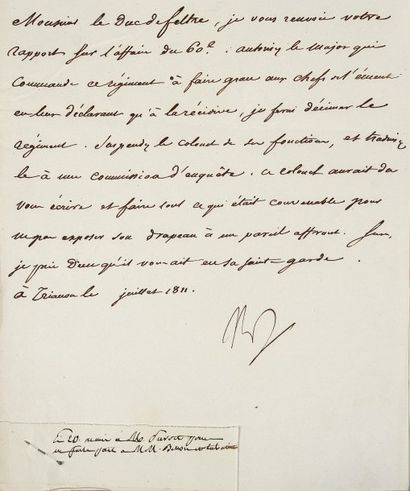 Monsieur le Duc de feltre, je vous renvoie votre
rapport sur l'affaire du 60e. autorisez le major qui
Commande ce régiment à faire grace aux chefs de l'émeute
en leur déclarant qu'à la récidive, je ferai décimer le
régiment. Suspendez le Colonel de ses fonctions, et traduisez
le à une commission d'enquête. ce colonel aurait du
vous écrire et faire tout ce qui était convenable pour
ne pas exposer son drapeau à un pareil affront. Sur ce,
je prie Dieu qu'il vous ait en sa sainte garde.
à Trianon le juillet 1811.
Np